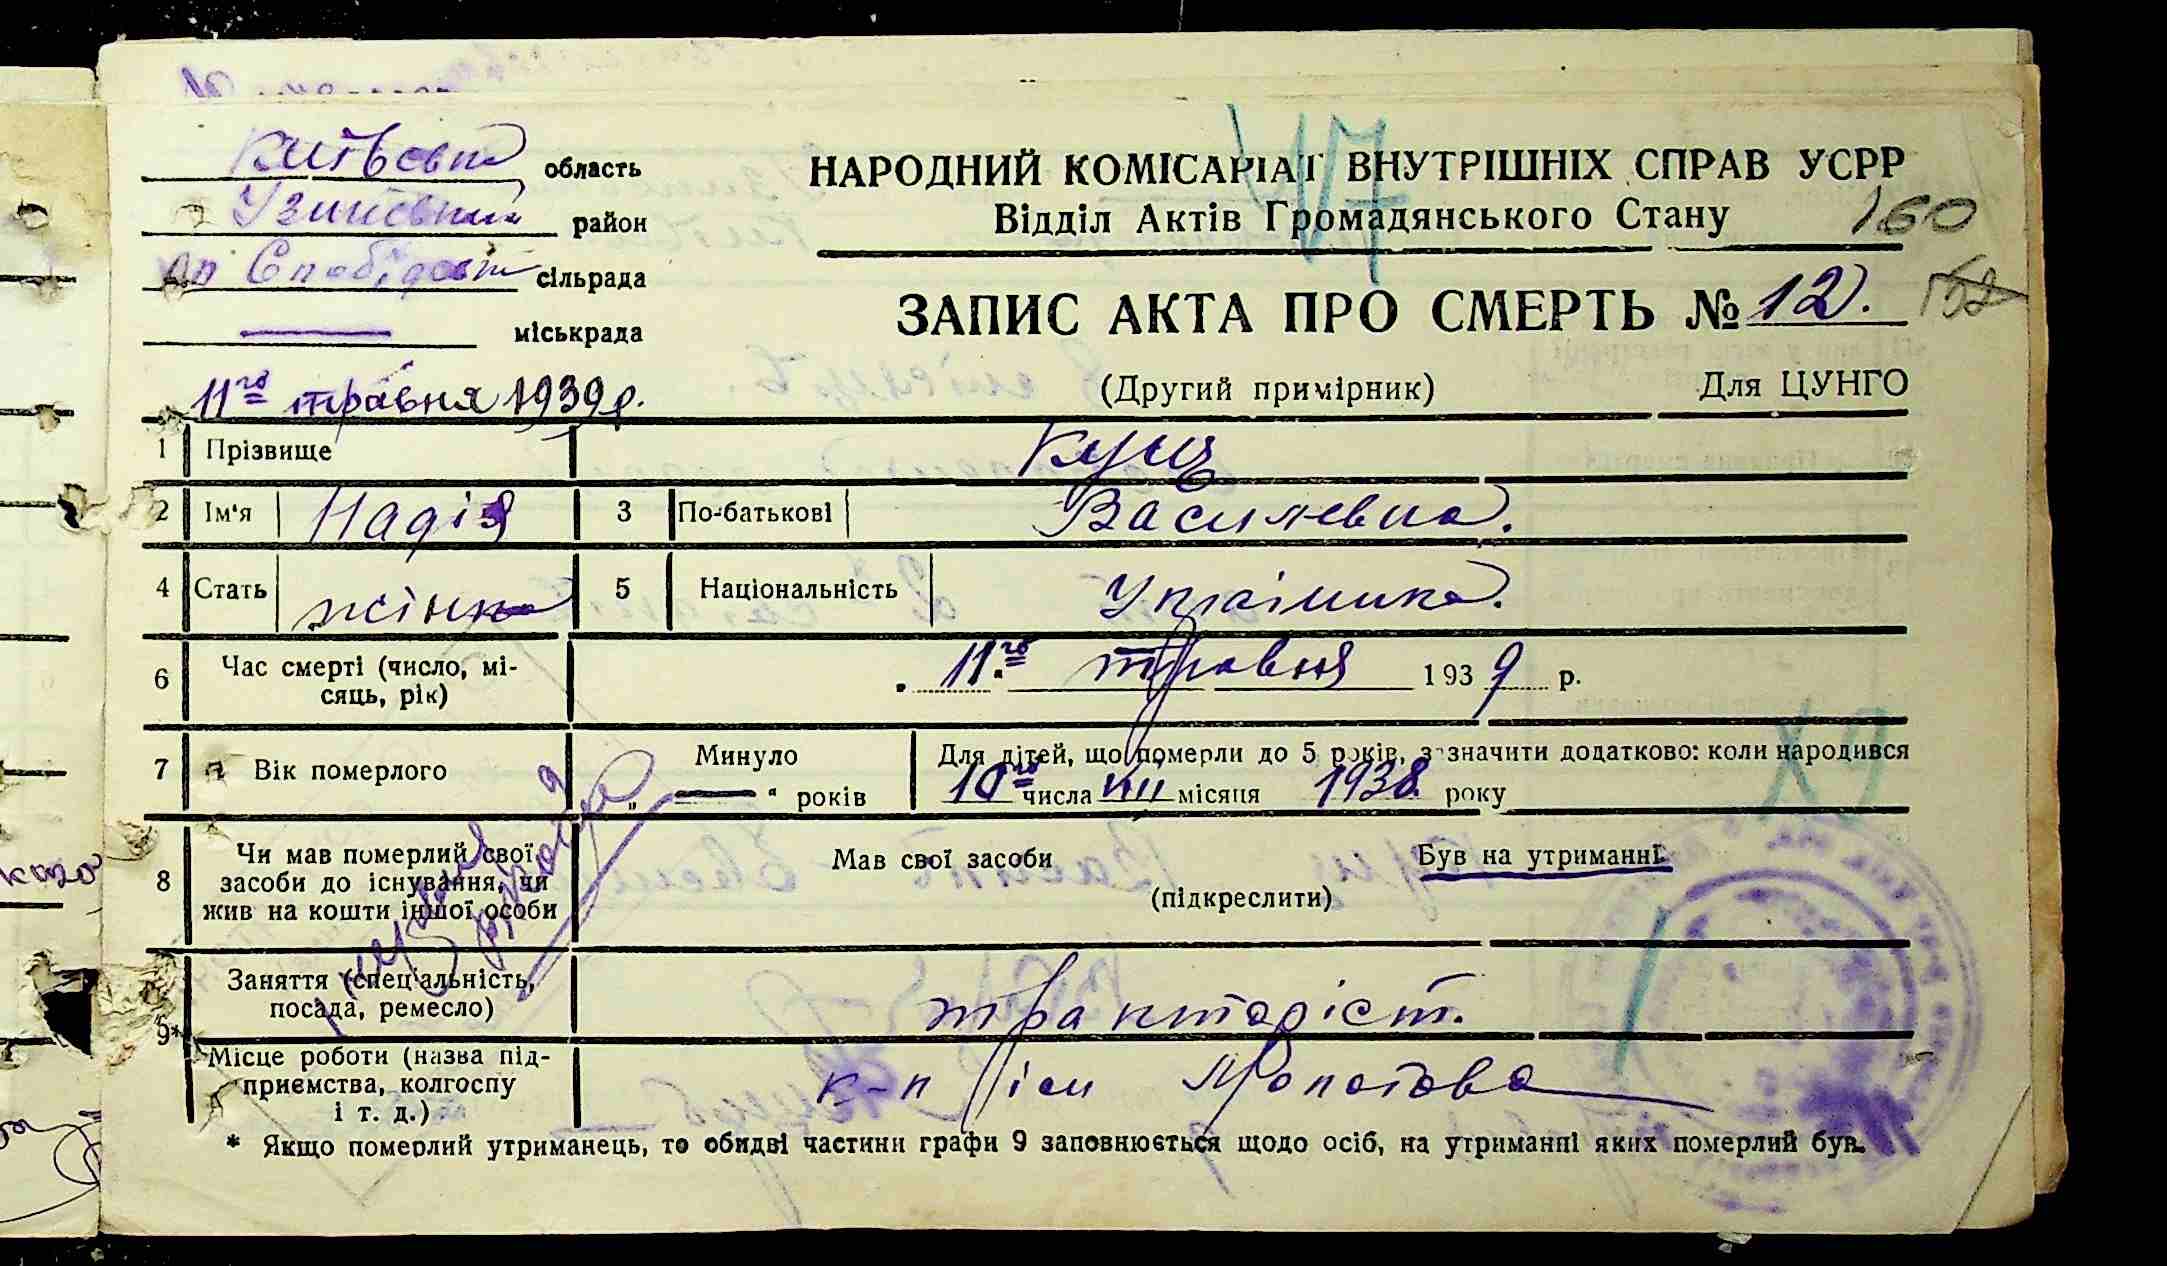 Київськ область
Узинський район
Слобідськ сільрада
міськрада
11го травня 1939 р.
47
НАРОДНИЙ КОМІСАРІАТ ВНУТРІШНІХ СПРАВ УСРР
Відділ Актів Громадянського Стану
160
ЗАПИС АКТА ПРО СМЕРТЬ № 12.
(Другий примірник) Для ЦУНГО
1 Прізвище Кущ
2 Ім'я Надія 3 По-батькові Василевна.
4 Стать жінка 5 Національність Украінка.
6 Час смерті (число, мі-
сяць, рік) 11го травня 1939 р.
7 Вік померлого Минуло „ — “ років Для дітей, що померли до 5 років, зазначити додатково: коли народився
10го числа VIII місяця 1938 року
8 Чи мав померлий свої
засоби до існування, чи
жив на кошти іншої особи
Мав свої засоби Був на утриманні
(підкреслити)
9* Заняття (спеціальність,
посада, ремесло) тракторіст.
Місце роботи (назва під-
приємства, колгоспу
і т. д.) к-п ім Молотова
* Якщо померлий утриманець, то обидві частини графи 9 заповнюється щодо осіб, на утриманні яких померлий був.